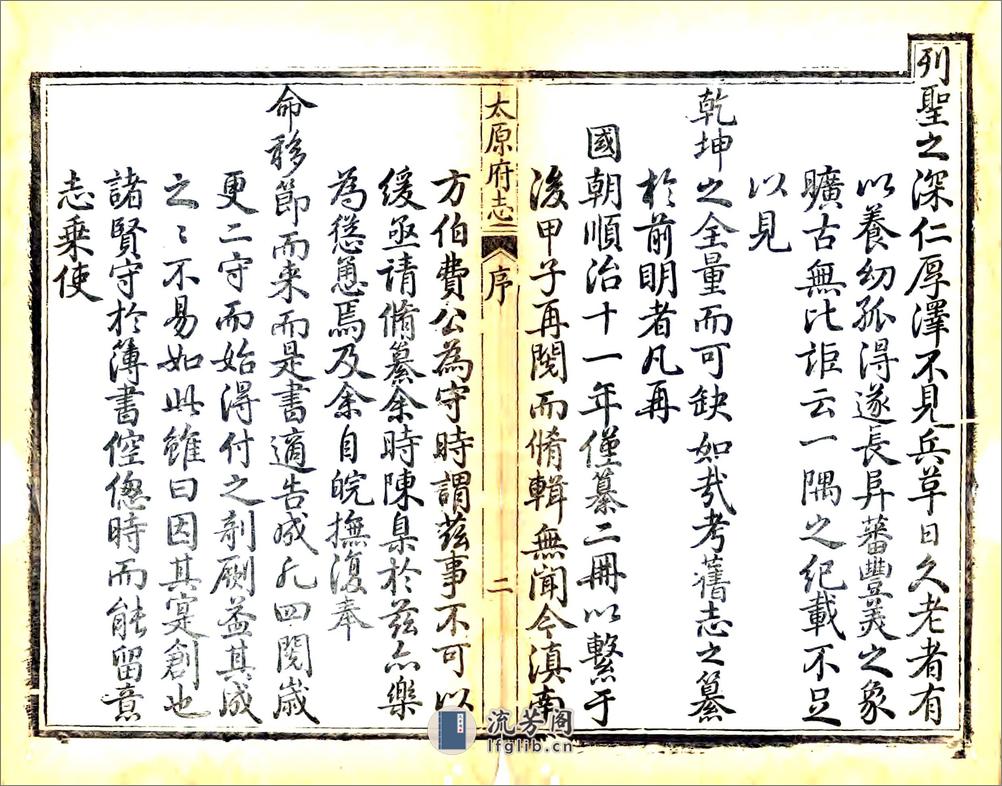 列聖之深仁厚澤不見兵革日久老者有
以養幼孤得遂長昇蕃豐美之象
曠古無比詎云一隅之紀載不足
以見
乾坤之全量而可缺如哉考舊志之纂
於前明者凡再
國朝順治十一年僅纂二冊以繫于
後甲子再閱而脩輯無聞今滇南
太原府志
序
二
方伯費公為守時謂茲事不可以
緩亟請脩纂余時陳臬於茲亦樂
為慫恿焉及余自皖撫復奉
命移節而来而是書適告成凡四閱歲
更二守而始得付之剞劂葢其成
之〻不易如此雖曰因其寔創也
諸賢守於簿書倥傯時而能留意
志乘使
流芳阁
lfglib.cn